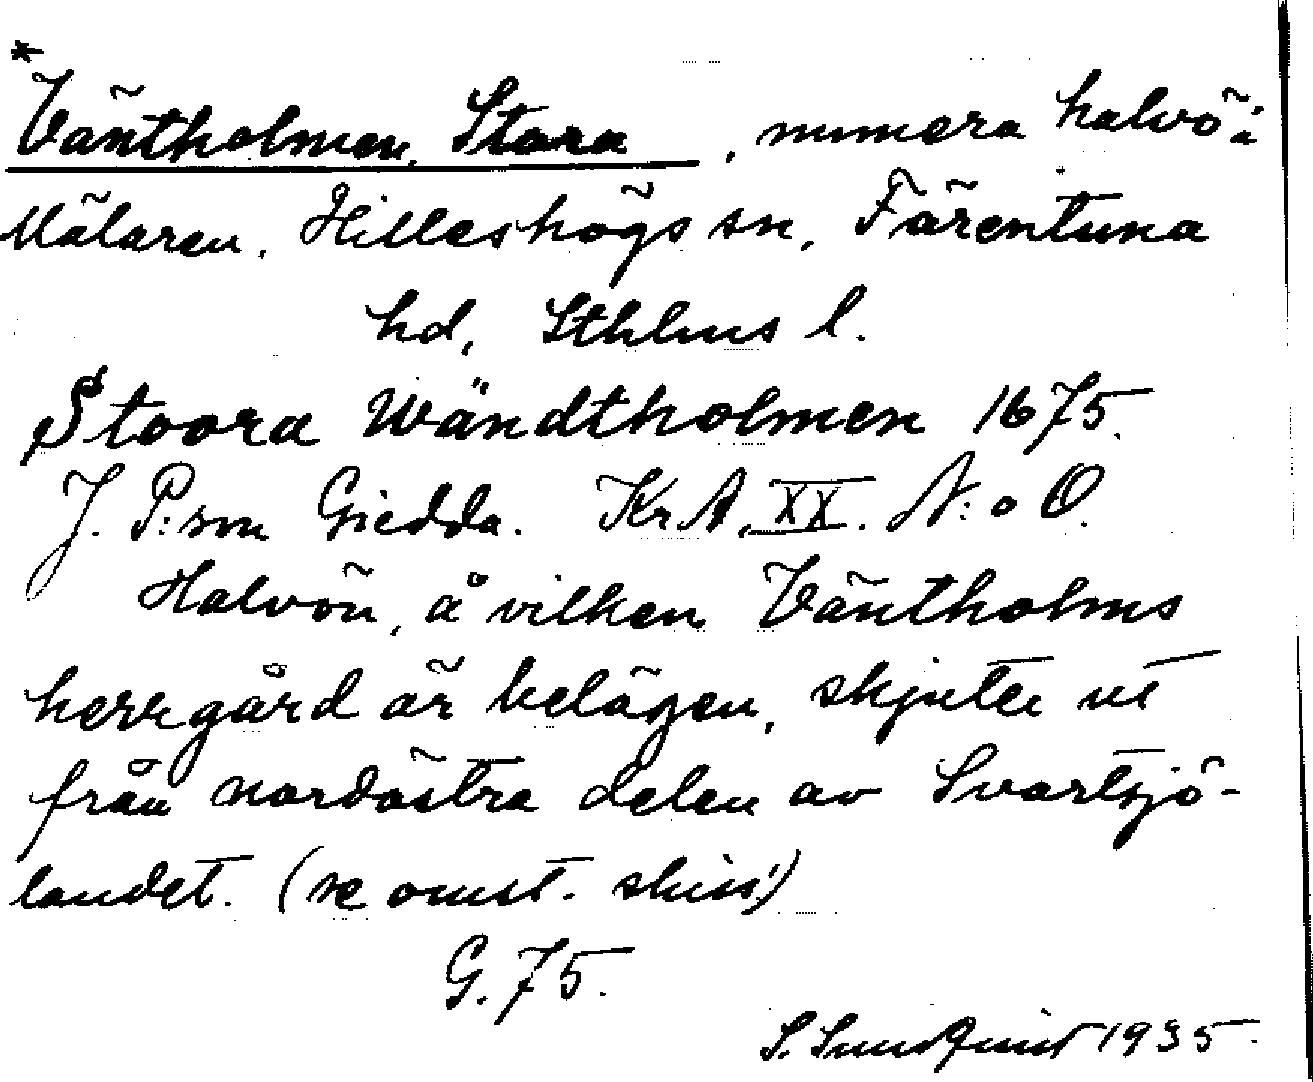 *
Väntholmen, Stora, numera halvö i
Mälaren. Hilleshögs sn, Färentuna
hd, Sthlms l.
Stoora Wändtholmen 1675.
J. P:son Giedda. Kr.A. XX. N:o O.
Halvön, å vilken Väntholms
herrgård är belägen, skjuter ut
från nordöstra delen av Svartsjö-
landet. (se omst. skiss!)
G. 75.
S. Sundquist 1935.